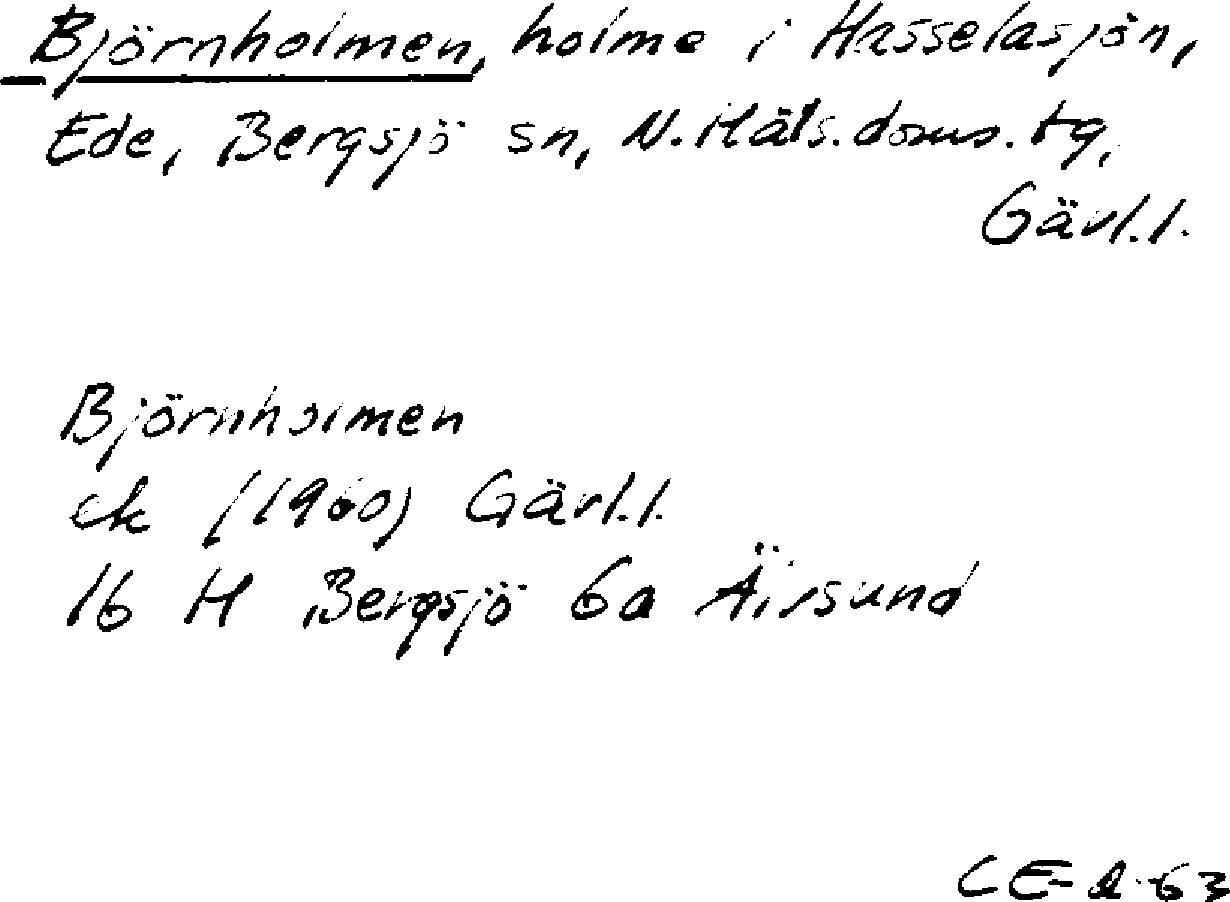 Björnholmen, holme i Hasselasjön,
Ede, Bergsjö sn, N. Häls. doms. tg,
Gävl.l.
Björnholmen
ek (1960) Gävl.l.
16 H Bergsjö 6a Älvsund
CE-A-63